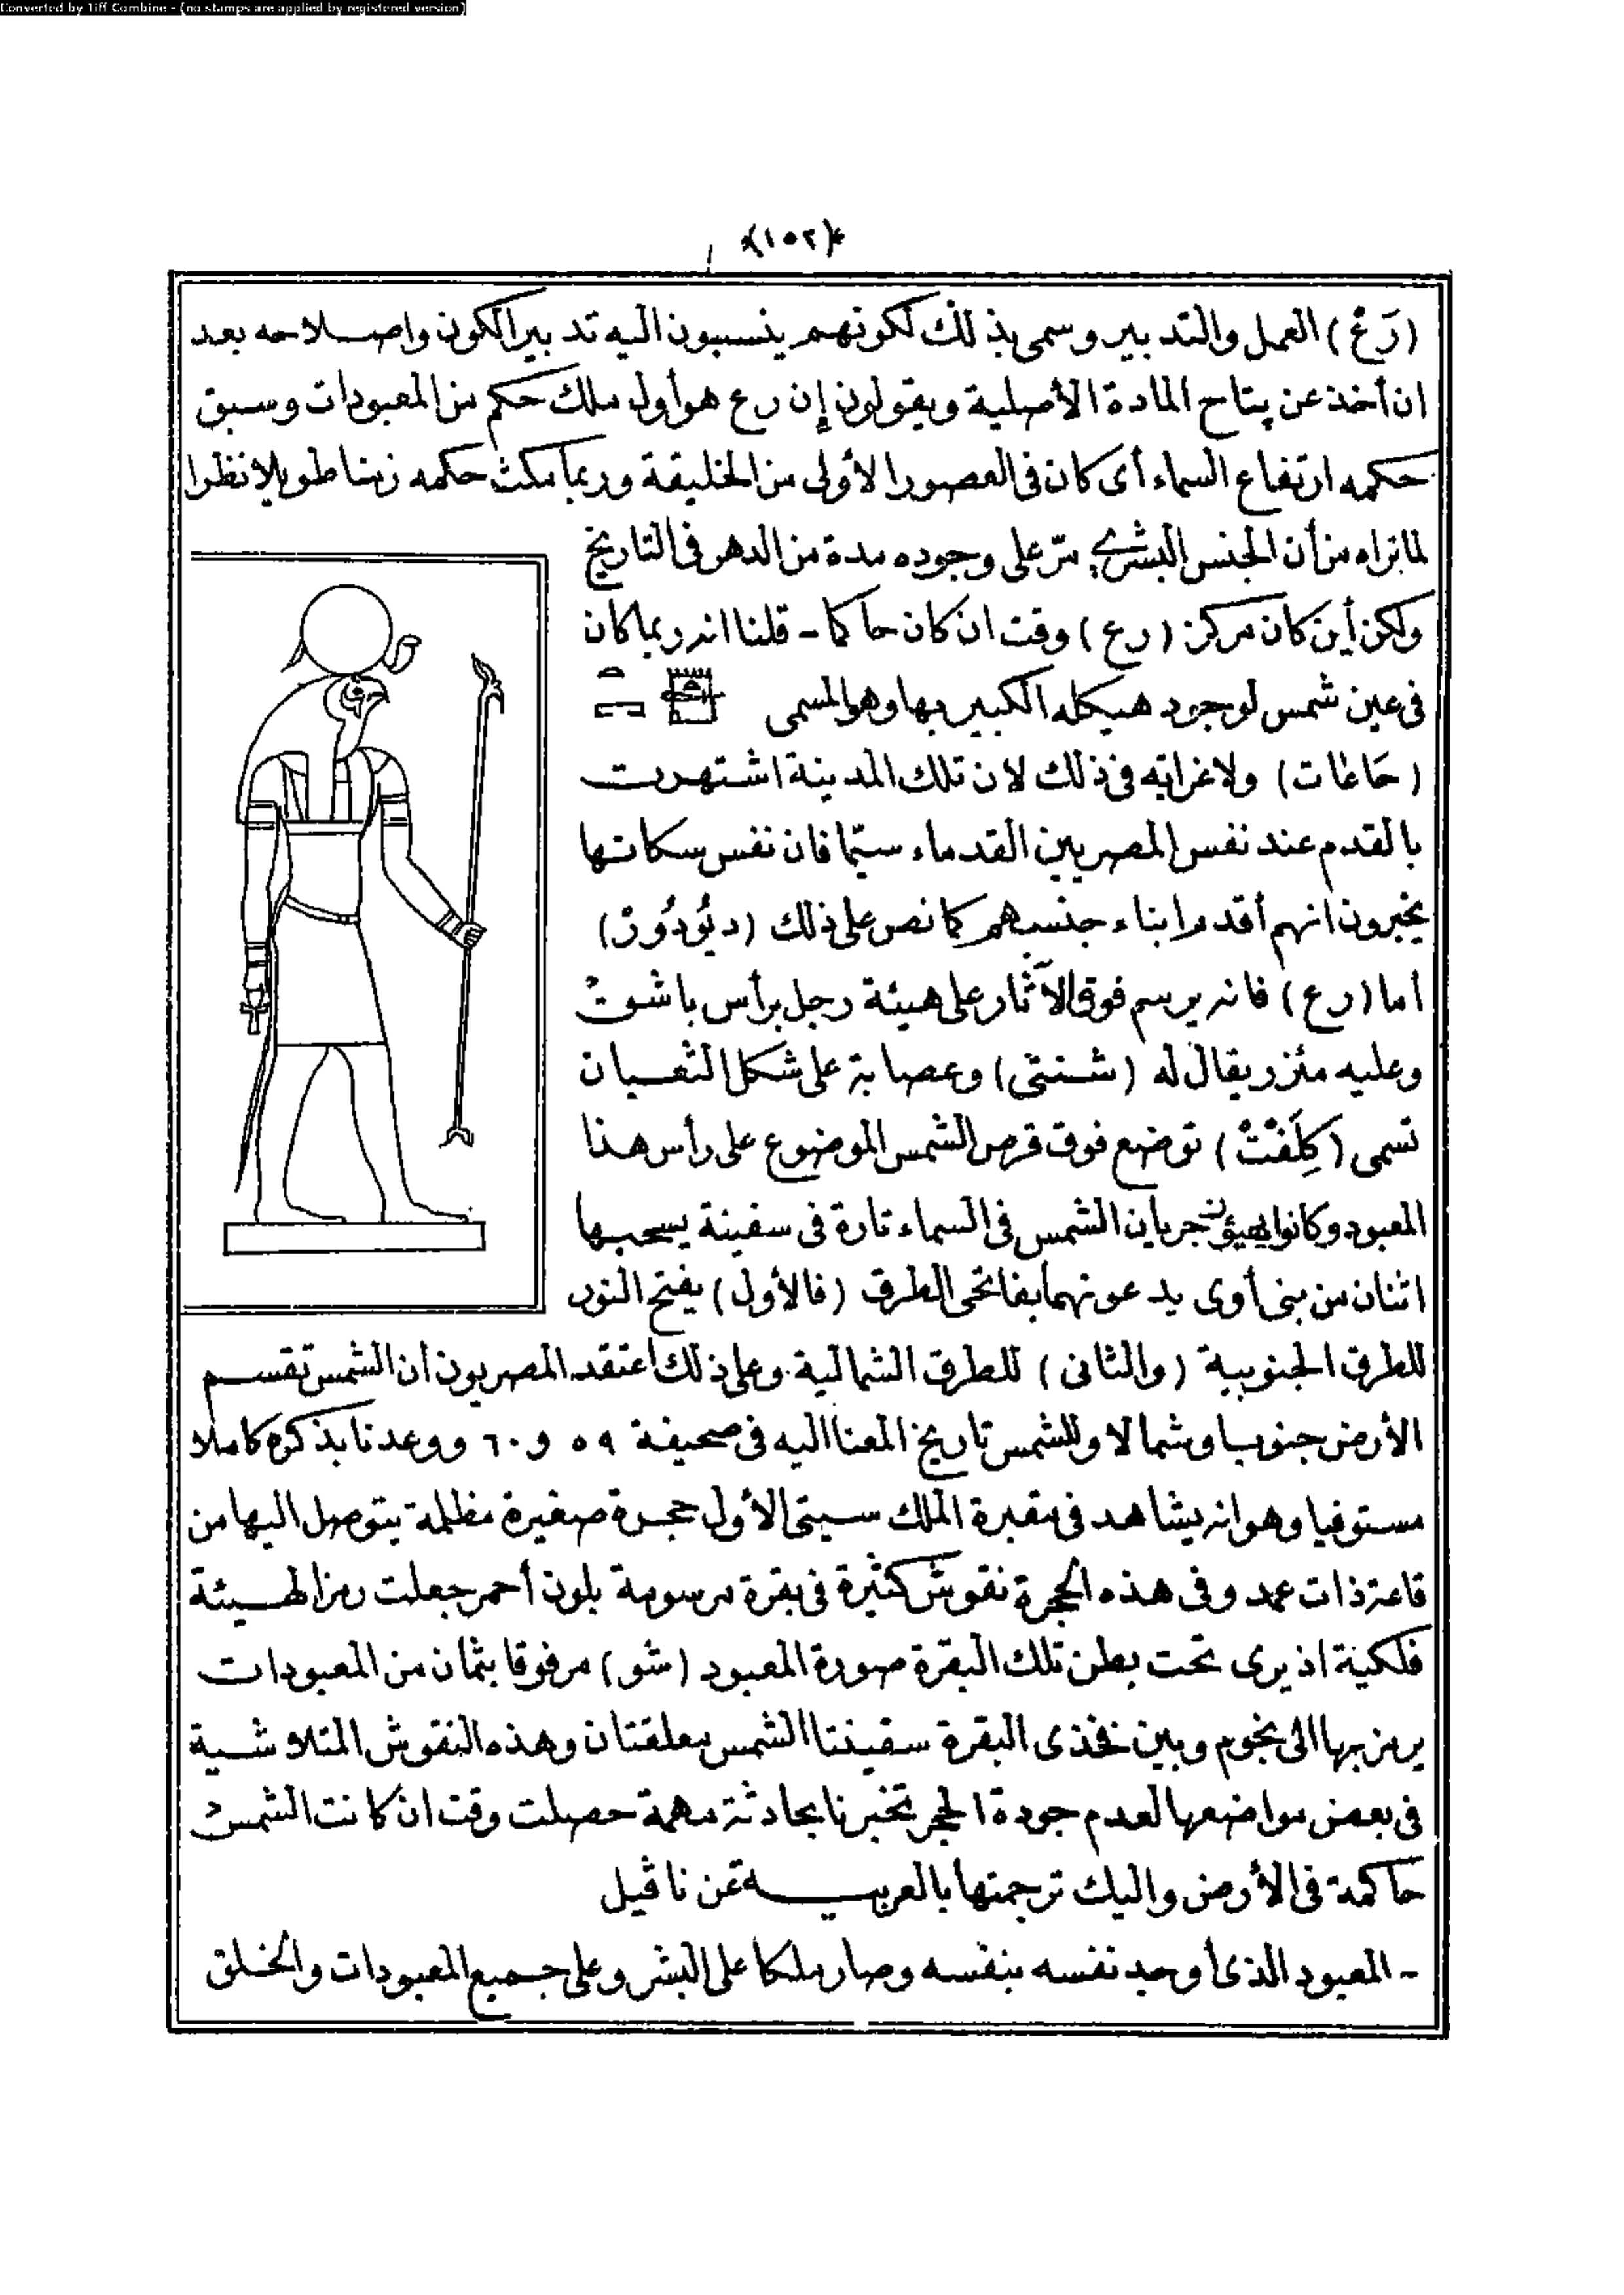 Converted by Tiff Combine - (no stamps are applied by registered version)
﴿١٥٢﴾
(رَعْ) العمل والتدبير وسمى بذلك لكونهم ينسبون اليه تدبير الكون واصلاحه بعد
ان أخذ عن پتاح المادة الأصلية ويقولون إن رع هو أول ملك حكم من المعبودات وسبق
حكمه ارتفاع السماء أى كان فى العصور الأولى من الخليقة وربما مكث حكمه زمنا طويلا نظرا
لما نراه من أن الجنس البشرى مرّ على وجوده مدة من الدهر فى التاريخ
ولكن أين كان مركز (رع) وقت ان كان حاكما - قلنا انه ربما كان
فى عين شمس لوجود هيكله الكبير بها وهو المسمى
(حَاعَات) ولا غرابة فى ذلك لان تلك المدينة اشتهرت
بالقدم عند نفس المصريين القدماء سيّما فان نفس سكانها
يخبرون انهم أقدم ابناء جنسهم كما نص على ذلك (ديُودُورْ)
أما (رع) فانه يرسم فوق الآثار على هيئة رجل برأس باشوت
وعليه مئزر يقال له (شنتى) وعصابة على شكل الثعبان
تسمى (كِلَفْتْ) توضع فوق قرص الشمس الموضوع على رأس هذا
المعبود وكانوا يهيؤن جريان الشمس فى السماء تارة فى سفينة يسحبها
اثنان من بنى أوى يدعونهما بفاتحى الطرق (فالأول) يفتح النور
للطرق الجنوبية (والثانى) للطرق الشمالية وعلى ذلك اعتقد المصريون ان الشمس تقسم
الأرض جنوبا وشمالا وللشمس تاريخ المعنا اليه فى صحيفة ٥٩ و ٦٠ ووعدنا بذكره كاملا
مستوفيا وهو انه يشاهد فى مقبرة الملك سيتى الأول حجرة صغيرة مظلمة يتوصل اليها من
قاعة ذات عمد وفى هذه الحجرة نقوش كثيرة فى بقرة مرسومة بلون أحمر جعلت رمزا لهيئة
فلكية اذ يرى تحت بطن تلك البقرة صورة المعبود (شو) مرفوقا بثمان من المعبودات
يرمز بها الى نجوم وبين فخذى البقرة سفينتا الشمس معلقتان وهذه النقوش المتلاشية
فى بعض مواضعها لعدم جودة الحجر تخبرنا بحادثة مهمة حصلت وقت ان كانت الشمس
حاكمة فى الأرض واليك ترجمتها بالعربية عن ناڤيل
- المعبود الذى أوجد نفسه بنفسه وصار ملكا على البشر وعلى جميع المعبودات والخلق